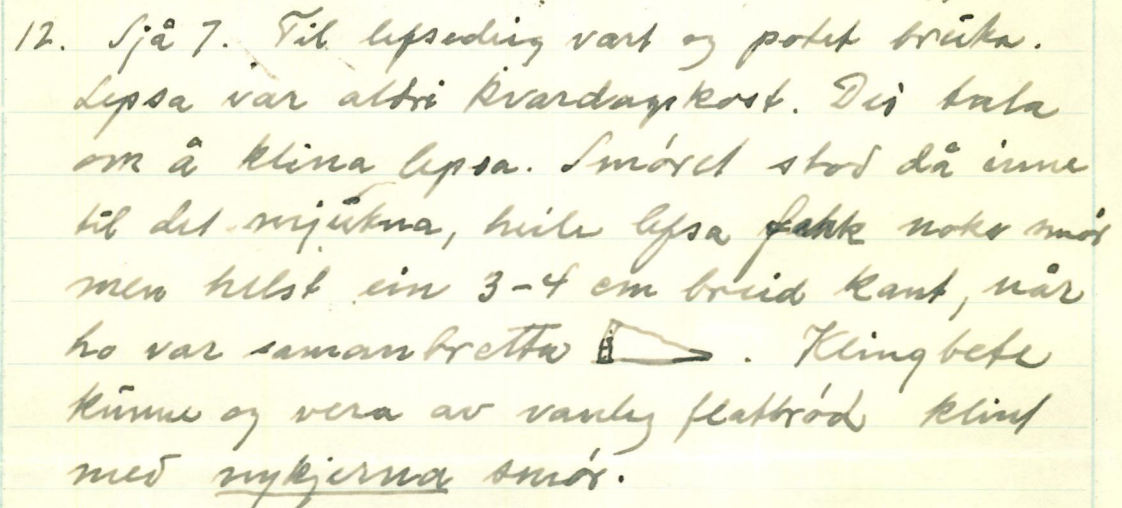 12. Sjå 7. Til lefsedeig vart og potet brúka.
Lepsa var aldri kvardagskost. Dei tala
om å klina lepsa. Smöret stod då inne
til det mjúkna, heile lefsa fekk noko smör
men helst ein 3-4 cm breid kant, når
ho var samanbretta . Klingbete
kúnne og vera av vanleg flatbröd klint
med nykjerna smör.